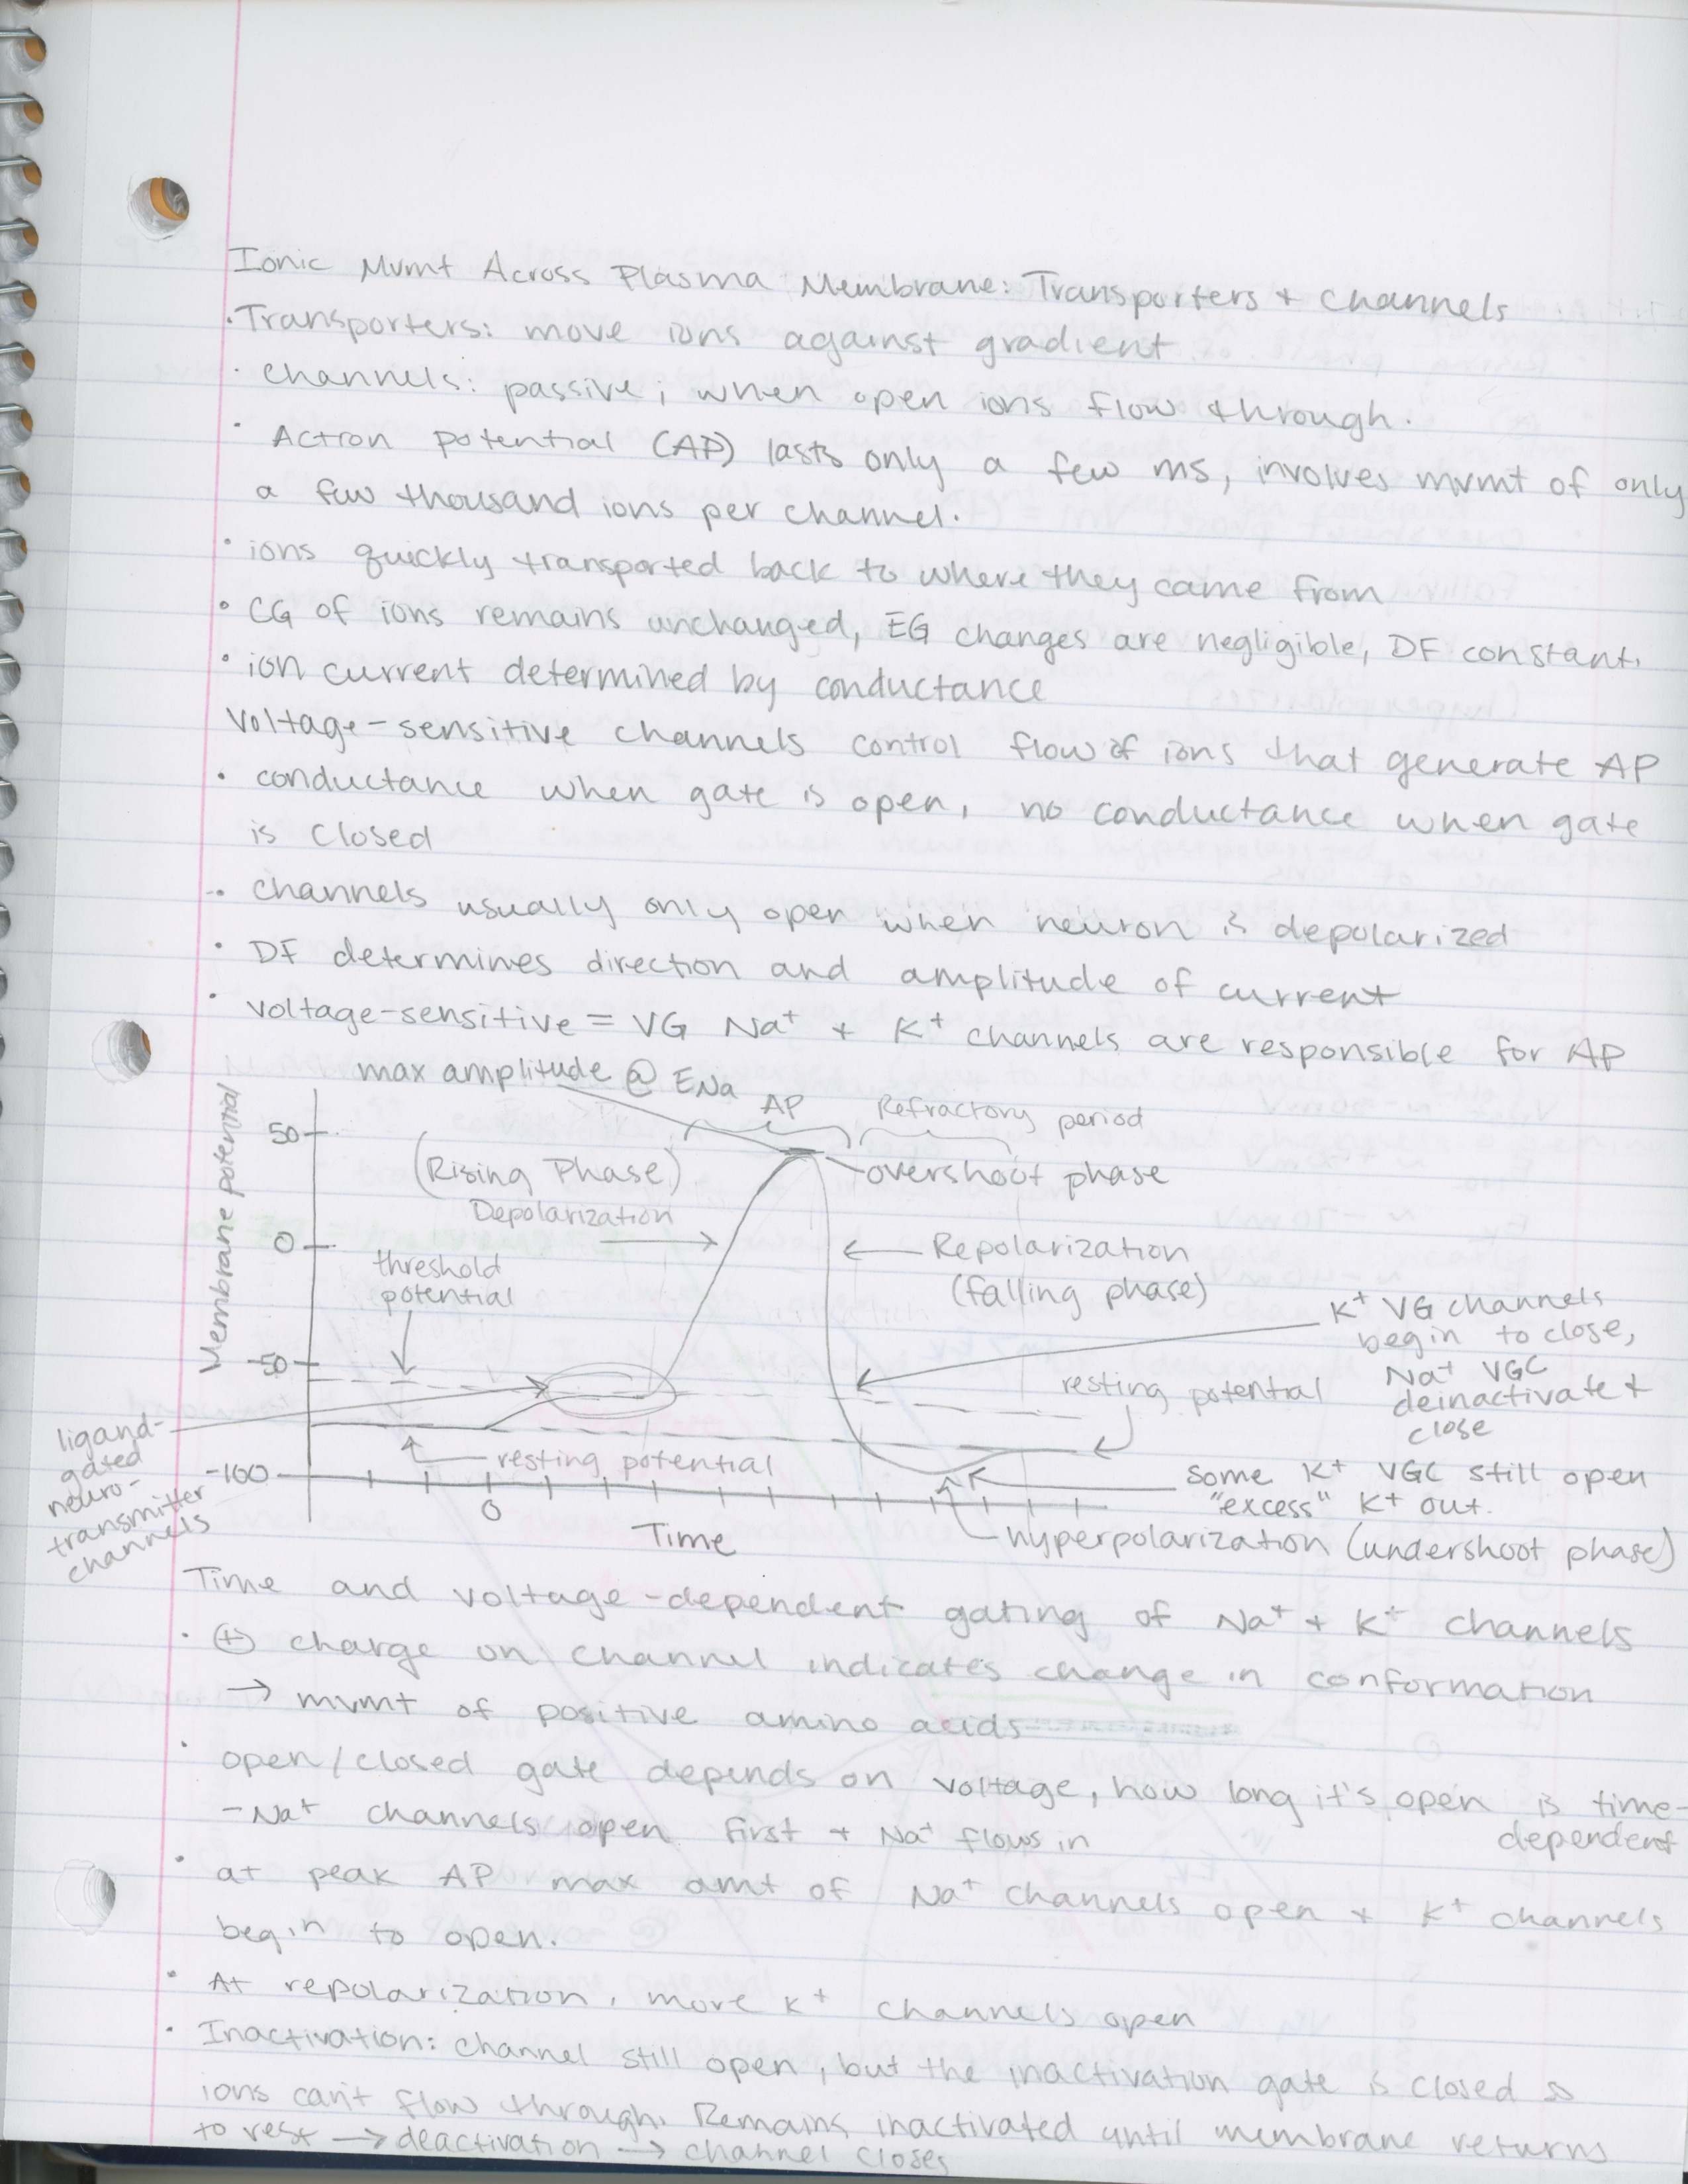 Ionic Mvmt Across Plasma Membrane: Transporters + channels
· Transporters: move ions against gradient
· channels: passive; when open ions flow through.
· Action potential (AP) lasts only a few ms, involves mvmt of only
a few thousand ions per channel.
· ions quickly transported back to where they came from
· CG of ions remains unchanged, EG changes are negligible, DF constant.
· ion current determined by conductance
Voltage-sensitive channels control flow of ions that generate AP
· conductance when gate is open, no conductance when gate
is closed
· channels usually only open when neuron is depolarized
· DF determines direction and amplitude of current
· voltage-sensitive = VG Na+ + K+ channels are responsible for AP
max amplitude @ ENa
AP
Refractory period
Membrane potential
50
(Rising Phase)
Depolarization
overshoot phase
0
threshold
potential
Repolarization
(falling phase)
K+ VG channels
begin to close,
Na+ VGC
deinactivate +
close
-50
resting potential
ligand-
gated
neuro-
transmitter
channels
resting potential
-100
0
Time
some K+ VGC still open
"excess" K+ out.
hyperpolarization (undershoot phase)
Time and voltage-dependent gating of Na+ + K+ channels
· (+) charge on channel indicates change in conformation
→ mvmt of positive amino acids
· open/closed gate depends on voltage, how long it's open is time-
dependent
- Na+ channels open first + Na+ flows in
· at peak AP max amt of Na+ channels open + K+ channels
begin to open.
· At repolarization, more K+ channels open
· Inactivation: channel still open, but the inactivation gate is closed so
ions can't flow through. Remains inactivated until membrane returns
to rest → deactivation → channel closes